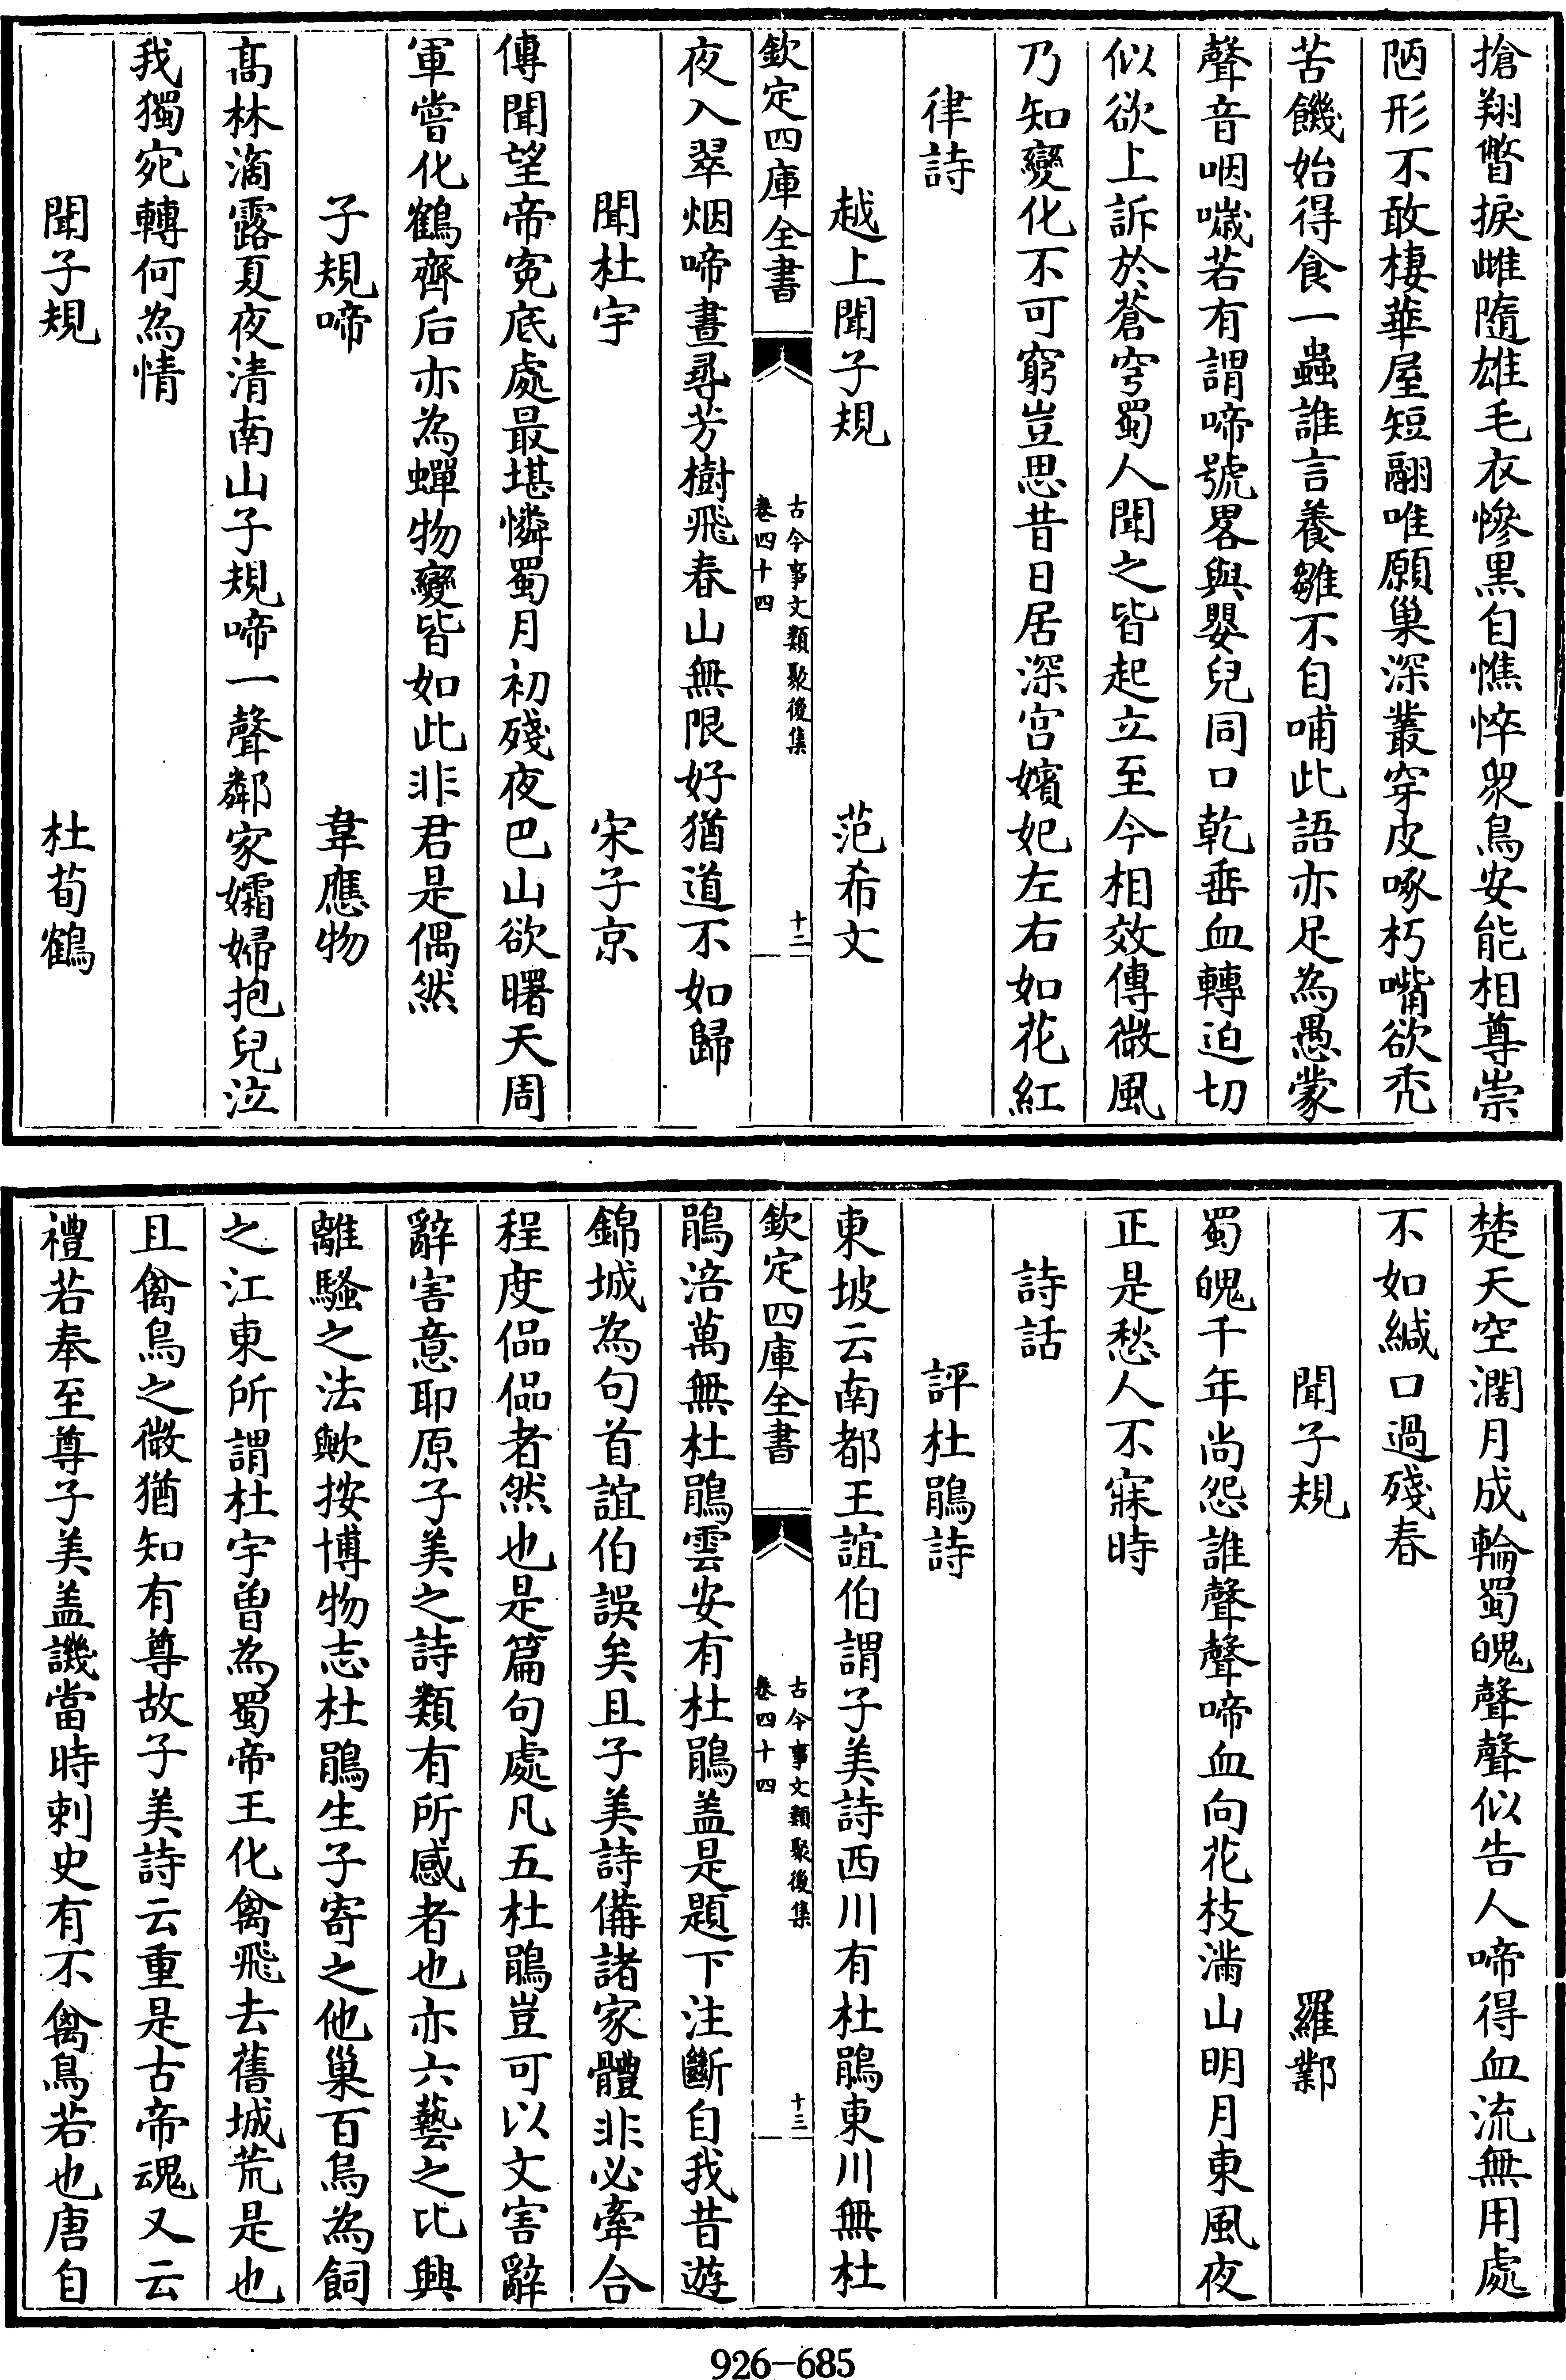 搶翔瞥捩雌隨雄毛衣慘黒自憔悴衆鳥安能相尊崇
陋形不敢棲華屋短翮唯願巢深叢穿皮啄朽嘴欲禿
苦饑始得食一蟲誰言養雛不自哺此語亦足為愚蒙
聲音咽噦若有謂啼號畧與嬰兒同口乾垂血轉迫切
似欲上訴於蒼穹蜀人聞之皆起立至今相效傳微風
乃知變化不可窮豈思昔日居深宫嬪妃左右如花紅
律詩
越上聞子規 范希文
欽定四庫全書 古今事文類聚後集 卷四十四 十二
夜入翠烟啼晝尋芳樹飛春山無限好猶道不如歸
聞杜宇 宋子京
傳聞望帝寃底處最堪憐蜀月初殘夜巴山欲曙天周
軍嘗化鶴齊后亦為蟬物變皆如此非君是偶然
子規啼 韋應物
髙林滴露夏夜清南山子規啼一聲鄰家孀婦抱兒泣
我獨宛轉何為情
聞子規 杜荀鶴
楚天空濶月成輪蜀魄聲聲似告人啼得血流無用處
不如緘口過殘春
聞子規 羅鄴
蜀魄千年尚怨誰聲聲啼血向花枝滿山明月東風夜
正是愁人不寐時
詩話
評杜鵑詩
東坡云南都王誼伯謂子美詩西川有杜鵑東川無杜
欽定四庫全書 古今事文類聚後集 卷四十四 十三
鵑涪萬無杜鵑雲安有杜鵑盖是題下注斷自我昔遊
錦城為句首誼伯誤矣且子美詩備諸家體非必牽合
程度偘偘者然也是篇句處凡五杜鵑豈可以文害辭
辭害意耶原子美之詩類有所感者也亦六藝之比興
離騷之法歟按博物志杜鵑生子寄之他巢百鳥為飼
之江東所謂杜宇曽為蜀帝王化禽飛去舊城荒是也
且禽鳥之微猶知有尊故子美詩云重是古帝魂又云
禮若奉至尊子美盖譏當時刺史有不禽鳥若也唐自
926-685